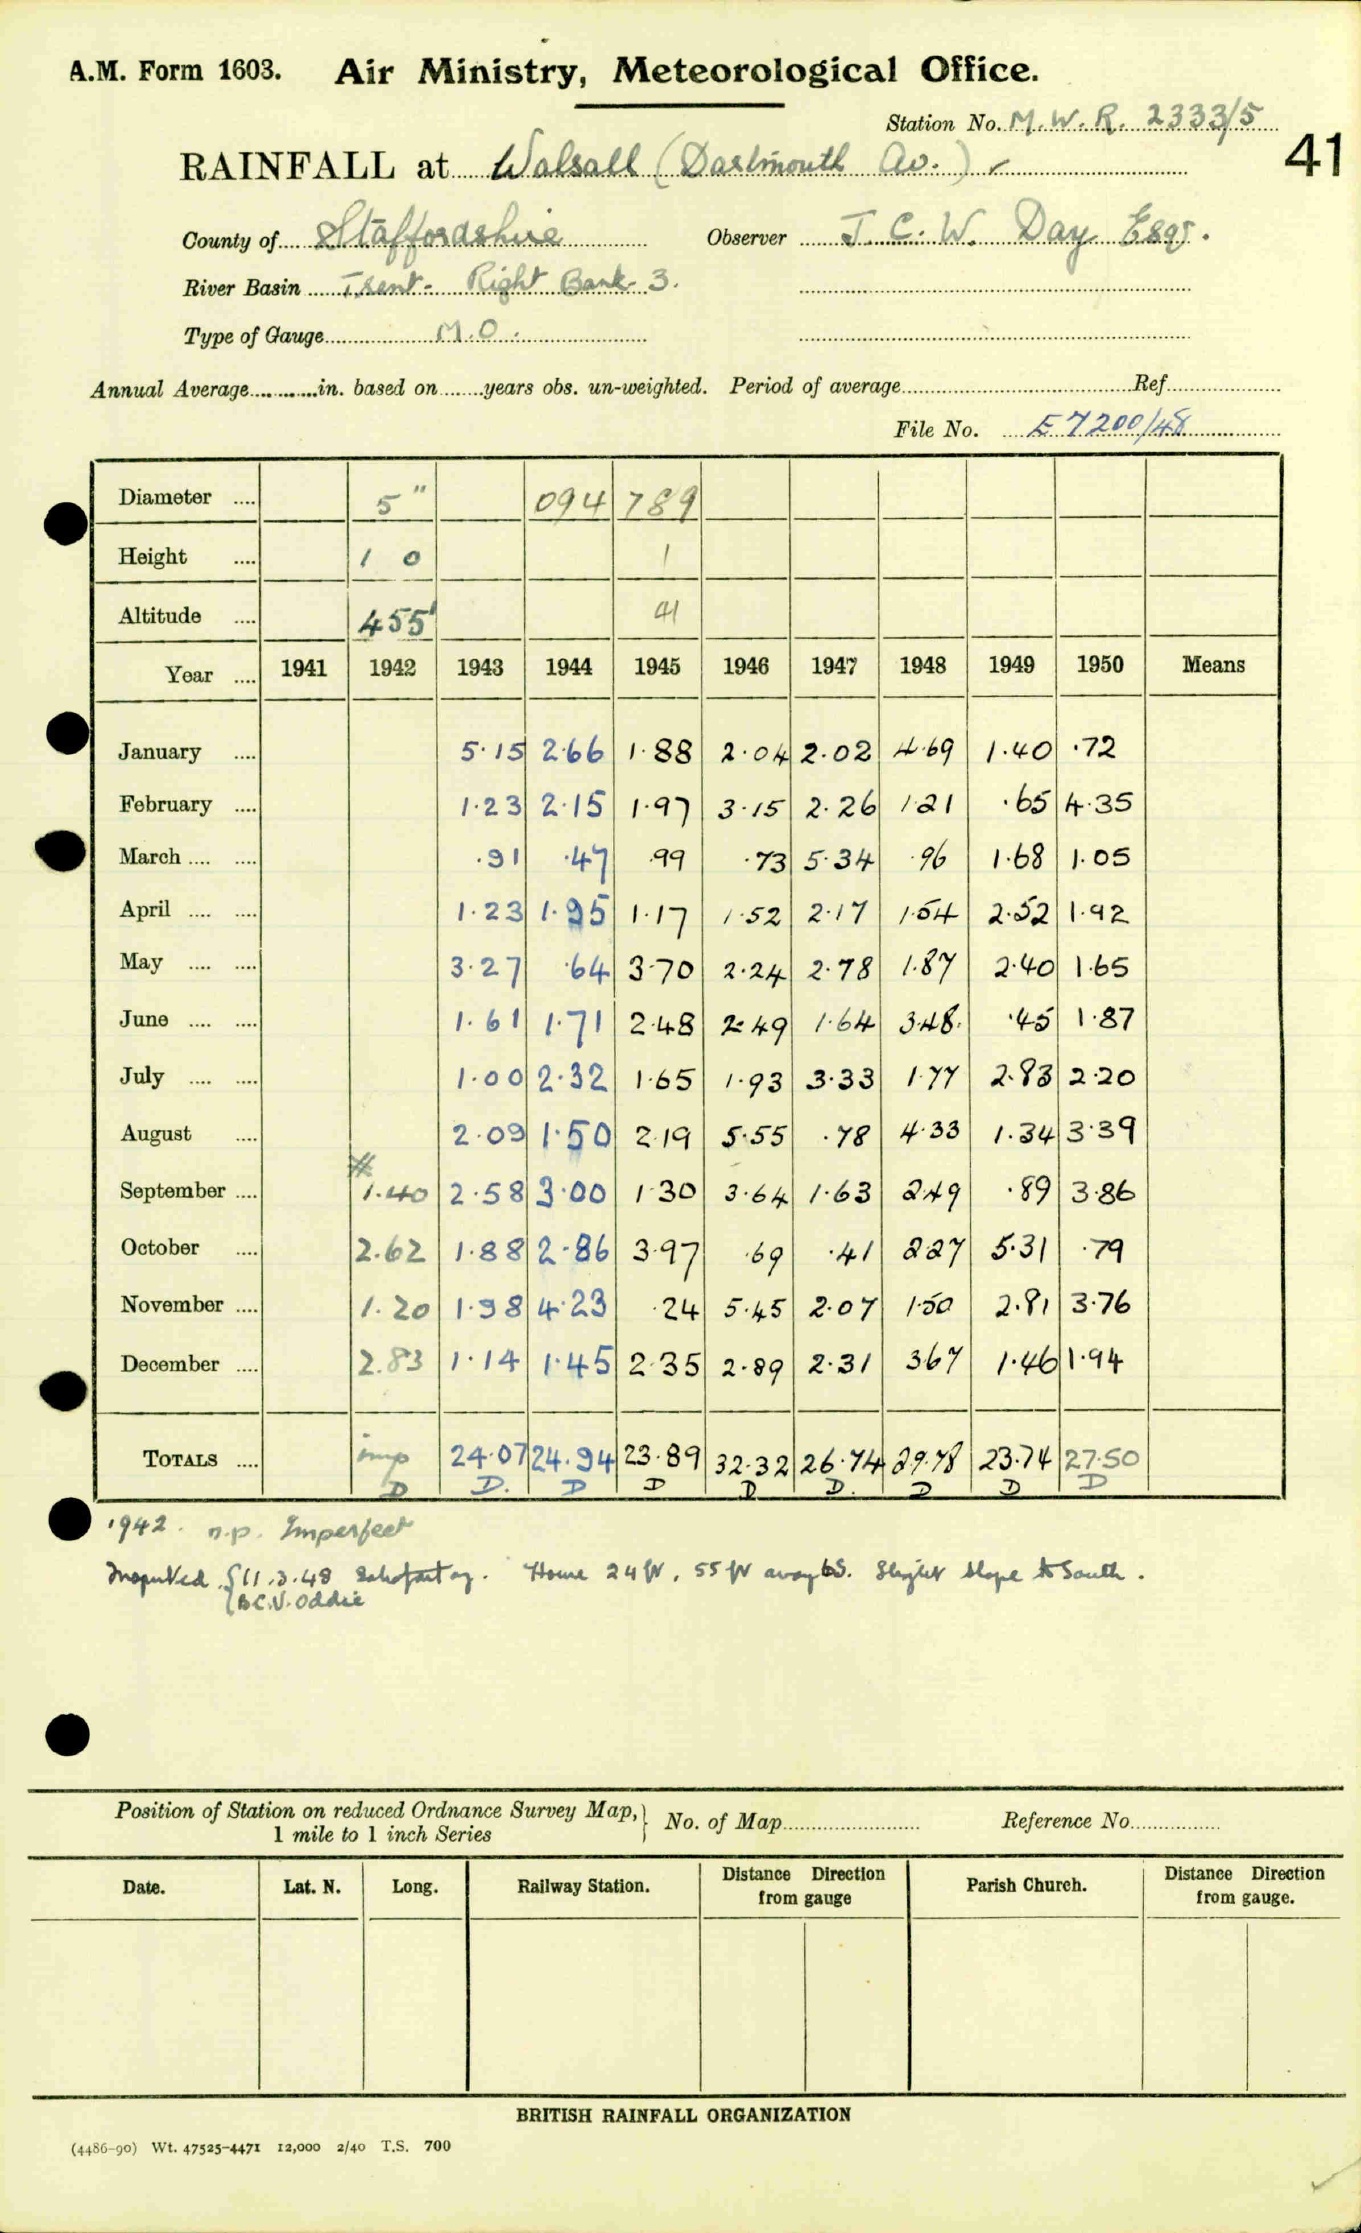 A.M. Form 1603. Air Ministry, Meteorological Office.
Station No. M.W.R. 2333/5
41
RAINFALL at Walsall (Dartmouth Av.) ✓
County of Staffordshire Observer J. C. W. Day Esqr.
River Basin Trent - Right Bank 3.
Type of Gauge M.O.
Annual Average in. based on years obs. un-weighted. Period of average Ref
File No. E7200/48
Diameter 5" 094 789
Height 1 0 1
Altitude 455' 41
Year 1941 1942 1943 1944 1945 1946 1947 1948 1949 1950 Means
January 5.15 2.66 1.88 2.04 2.02 4.69 1.40 .72
February 1.23 2.15 1.97 3.15 2.26 1.21 .65 4.35
March .91 .47 .99 .73 5.34 .96 1.68 1.05
April 1.23 1.95 1.17 1.52 2.17 1.54 2.52 1.92
May 3.27 .64 3.70 2.24 2.78 1.87 2.40 1.65
June 1.61 1.71 2.48 2.49 1.64 3.48 .45 1.87
July 1.00 2.32 1.65 1.93 3.33 1.77 2.83 2.20
August 2.09 1.50 2.19 5.55 .78 4.33 1.34 3.39
September #1.40 2.58 3.00 1.30 3.64 1.63 2.49 .89 3.86
October 2.62 1.88 2.86 3.97 .69 .41 2.27 5.31 .79
November 1.20 1.98 4.23 .24 5.45 2.07 1.50 2.81 3.76
December 2.83 1.14 1.45 2.35 2.89 2.31 3.67 1.46 1.94
TOTALS imp 24.07 24.94 23.89 32.32 26.74 29.78 23.74 27.50
D D. D D D D. D D D
1942. n.p. Imperfect
Inspected {11.3.48 Satisfactory. House 24 ft, 55 ft away Slight slope to South.
B.C.V. Oddie
Position of Station on reduced Ordnance Survey Map, 1 mile to 1 inch Series } No. of Map Reference No.
Date. Lat. N. Long. Railway Station. Distance Direction from gauge Parish Church. Distance Direction from gauge.
BRITISH RAINFALL ORGANIZATION
(4486-90) Wt. 47525-4471 12,000 2/40 T.S. 700